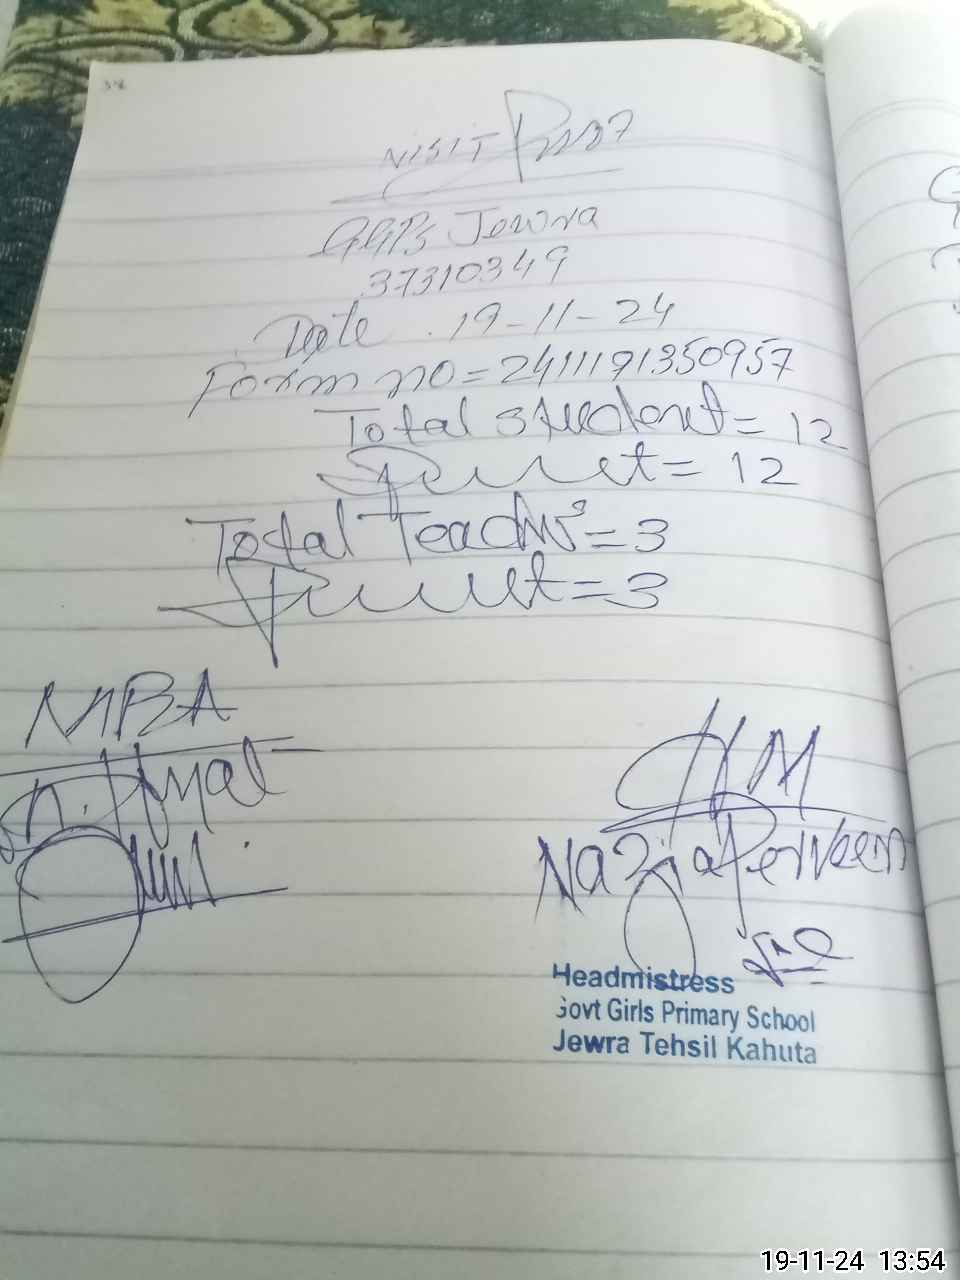 38
VISIT
GGPS Jewra
37310349
Date . 19-11-24
Form no = 2411191350957
Total student = 12
Present = 12
Total Teachers = 3
Present = 3
MBA
HM
Nazia Perveen
Headmistress
Govt Girls Primary School
Jewra Tehsil Kahuta
19-11-24 13:54